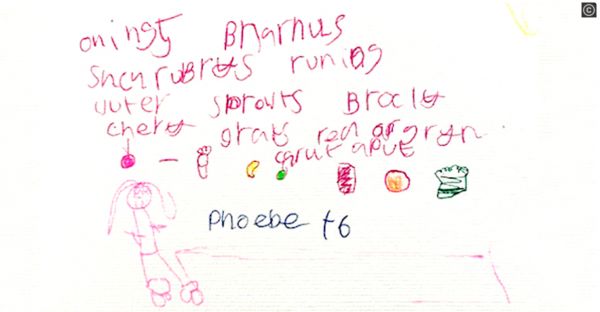 ©
oningt Bnarnus
Sncnrubrys runing
wuter sprouts Brocly
chery grats red or gryn
carut aput
Phoebe t6